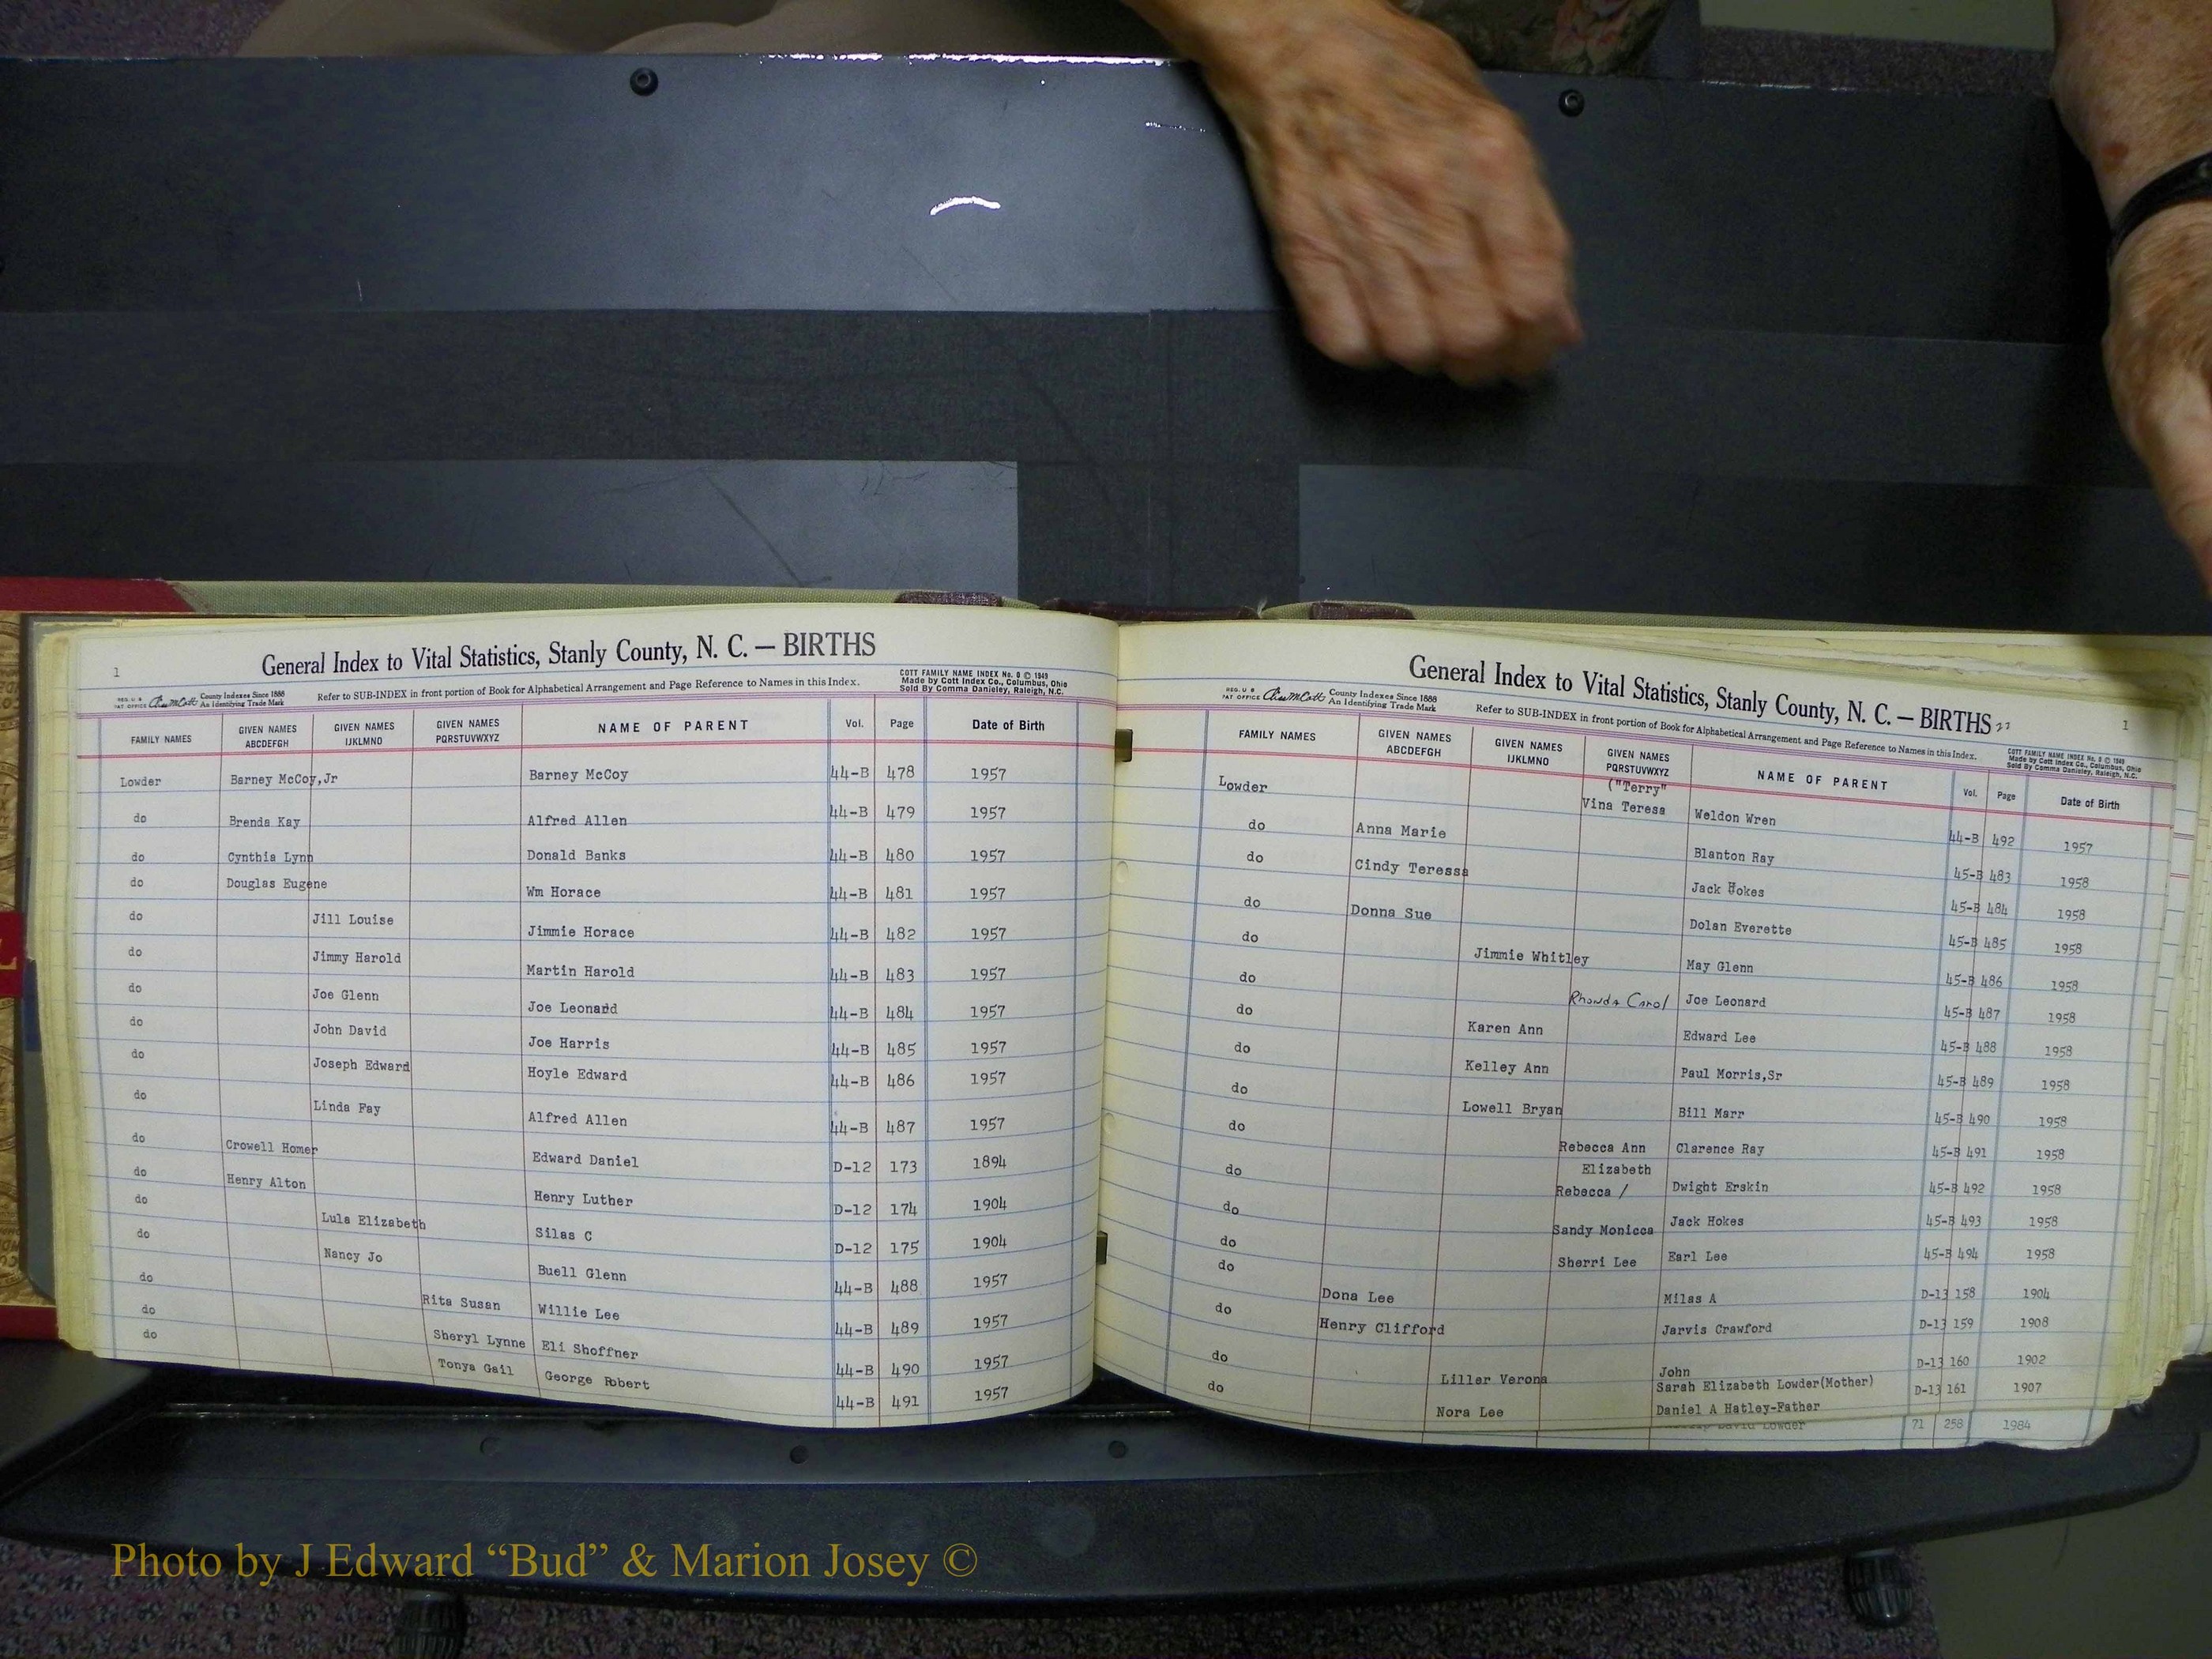 1
General Index to Vital Statistics, Stanly County, N. C. — BIRTHS
REG. U S PAT OFFICE County Indexes Since 1888 An Identifying Trade Mark
Refer to SUB-INDEX in front portion of Book for Alphabetical Arrangement and Page Reference to Names in this Index.
COTT FAMILY NAME INDEX No. 0 © 1949
Made by Cott Index Co., Columbus, Ohio
Sold By Comma Danieley, Raleigh, N.C.
FAMILY NAMES GIVEN NAMES ABCDEFGH GIVEN NAMES IJKLMNO GIVEN NAMES PQRSTUVWXYZ NAME OF PARENT Vol. Page Date of Birth
Lowder Barney McCoy,Jr Barney McCoy 44-B 478 1957
do Brenda Kay Alfred Allen 44-B 479 1957
do Cynthia Lynn Donald Banks 44-B 480 1957
do Douglas Eugene Wm Horace 44-B 481 1957
do Jill Louise Jimmie Horace 44-B 482 1957
do Jimmy Harold Martin Harold 44-B 483 1957
do Joe Glenn Joe Leonard 44-B 484 1957
do John David Joe Harris 44-B 485 1957
do Joseph Edward Hoyle Edward 44-B 486 1957
do Linda Fay Alfred Allen 44-B 487 1957
do Crowell Homer Edward Daniel D-12 173 1894
do Henry Alton Henry Luther D-12 174 1904
do Lula Elizabeth Silas C D-12 175 1904
do Nancy Jo Buell Glenn 44-B 488 1957
do Rita Susan Willie Lee 44-B 489 1957
do Sheryl Lynne Eli Shoffner 44-B 490 1957
do Tonya Gail George Robert 44-B 491 1957
General Index to Vital Statistics, Stanly County, N. C. — BIRTHS 1
REG. U S PAT OFFICE County Indexes Since 1888 An Identifying Trade Mark
Refer to SUB-INDEX in front portion of Book for Alphabetical Arrangement and Page Reference to Names in this Index.
COTT FAMILY NAME INDEX No. 0 © 1949
Made by Cott Index Co., Columbus, Ohio
Sold By Comma Danieley, Raleigh, N.C.
FAMILY NAMES GIVEN NAMES ABCDEFGH GIVEN NAMES IJKLMNO GIVEN NAMES PQRSTUVWXYZ NAME OF PARENT Vol. Page Date of Birth
("Terry"
Lowder Vina Teresa Weldon Wren 44-B 492 1957
do Anna Marie Blanton Ray 45-B 483 1958
do Cindy Teressa Jack Hokes 45-B 484 1958
do Donna Sue Dolan Everette 45-B 485 1958
do Jimmie Whitley May Glenn 45-B 486 1958
do Rhonda Carol Joe Leonard 45-B 487 1958
do Karen Ann Edward Lee 45-B 488 1958
do Kelley Ann Paul Morris,Sr 45-B 489 1958
do Lowell Bryan Bill Marr 45-B 490 1958
do Rebecca Ann Clarence Ray 45-B 491 1958
Elizabeth
do Rebecca / Dwight Erskin 45-B 492 1958
do Sandy Monicca Jack Hokes 45-B 493 1958
do Sherri Lee Earl Lee 45-B 494 1958
do Dona Lee Milas A D-13 158 1904
do Henry Clifford Jarvis Crawford D-13 159 1908
do Liller Verona John D-13 160 1902
Sarah Elizabeth Lowder(Mother)
do Nora Lee Daniel A Hatley-Father D-13 161 1907
David Lowder 71 258 1984
Photo by J Edward “Bud” & Marion Josey ©